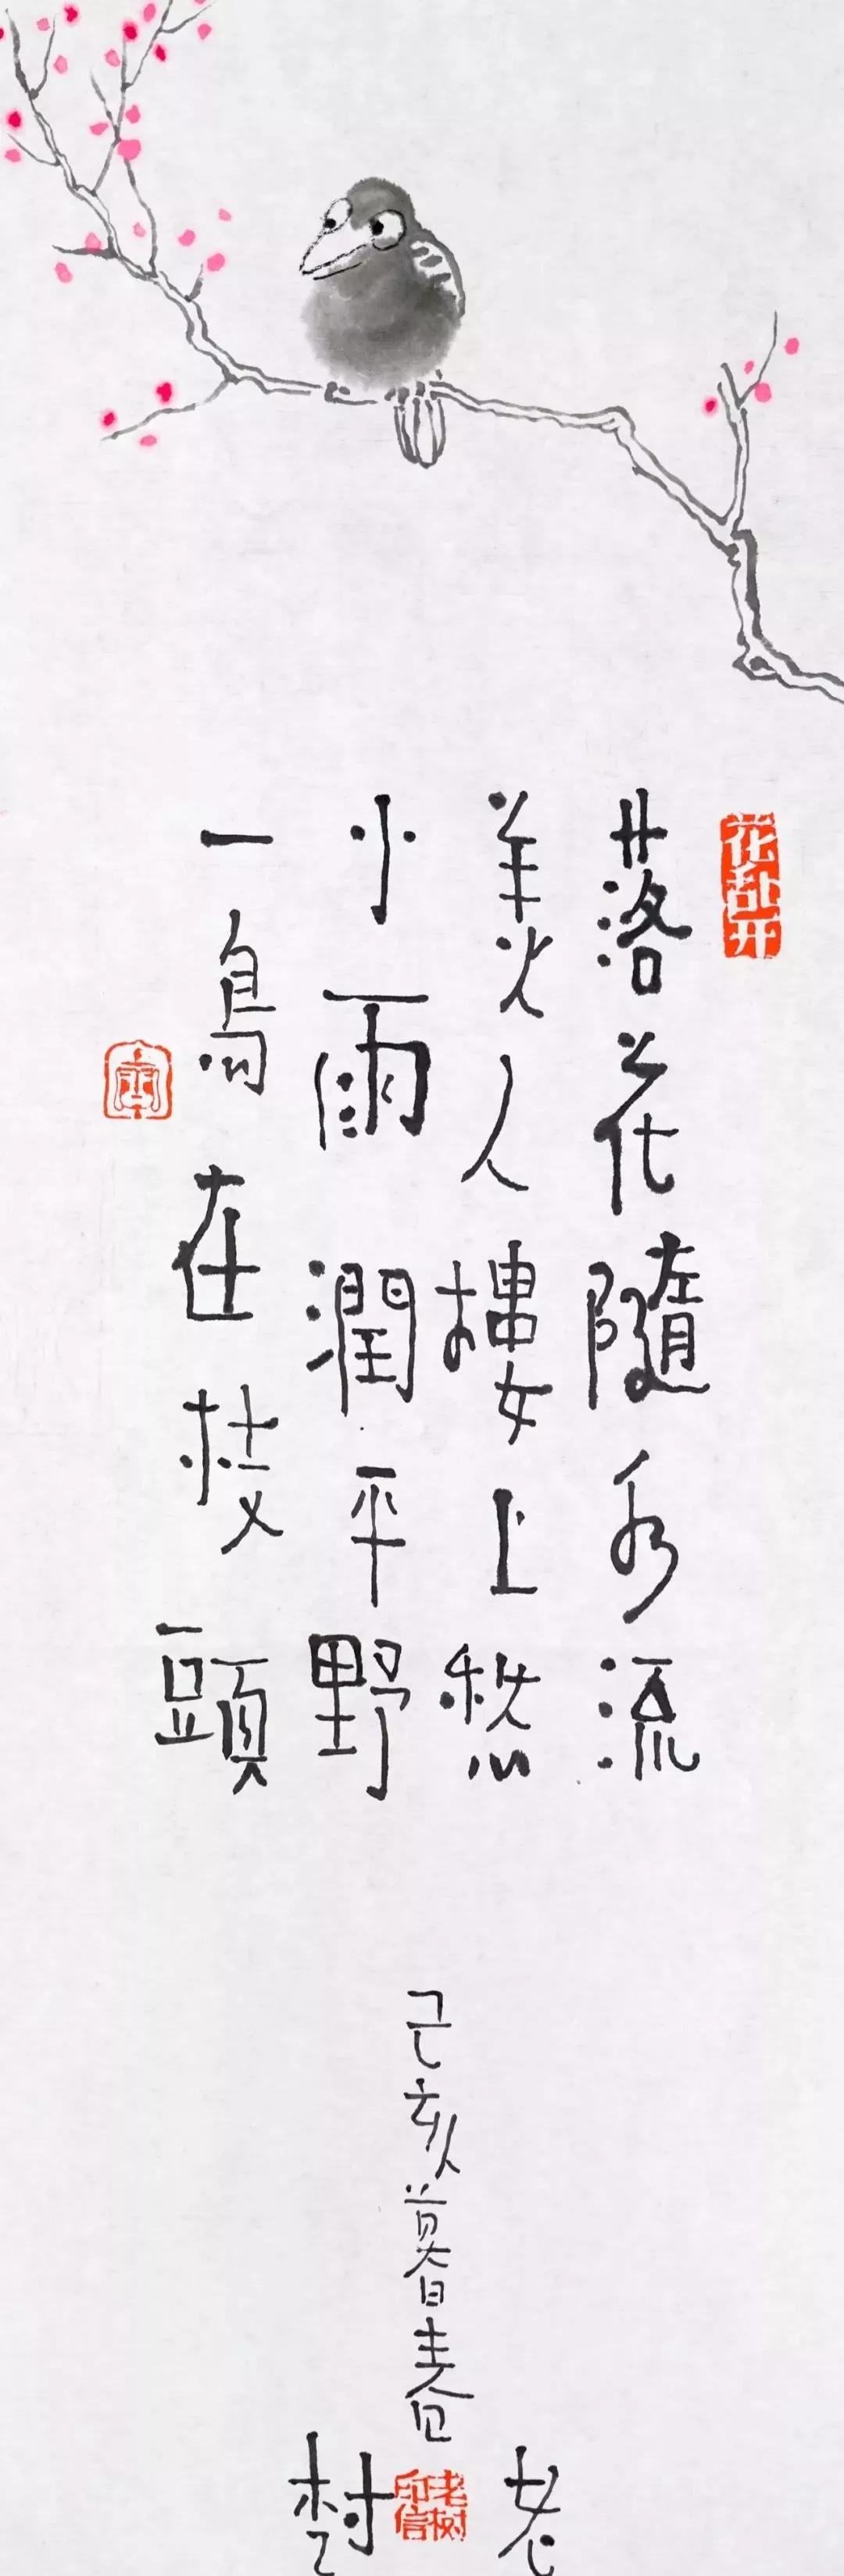 花乱开
落花隨水流
美人樓上愁
小雨潤平野
一鳥在枝頭
己亥暮春
老樹
老树印信